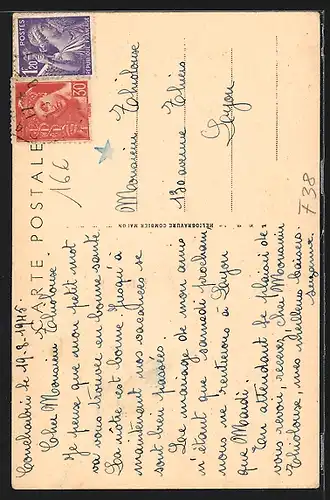 CARTE POSTALE
Couchabri le 19-8-1945
Cher Monsieur Thiolouse.
Je pense que mon petit mot
va vous trouver en bonne santé
La nôtre est bonne. Jusqu'à
maintenant nos vacances se
sont bien passées.
Le mariage de mon amie
n'étant que samedi prochain
nous ne rentrerons à Lyon
que Mardi.
En attendant le plaisir de
vous revoir, recevez, cher Monsieur
Thiolouse, mes meilleurs baisers.
Suzanne.
HÉLIOGRAVURE COMBIER MACON
Monsieur Thiolouse
Avenue Thiers
Lyon
POSTES
1,20
REPUBLIQUE FRANCAISE
30
16E
F38